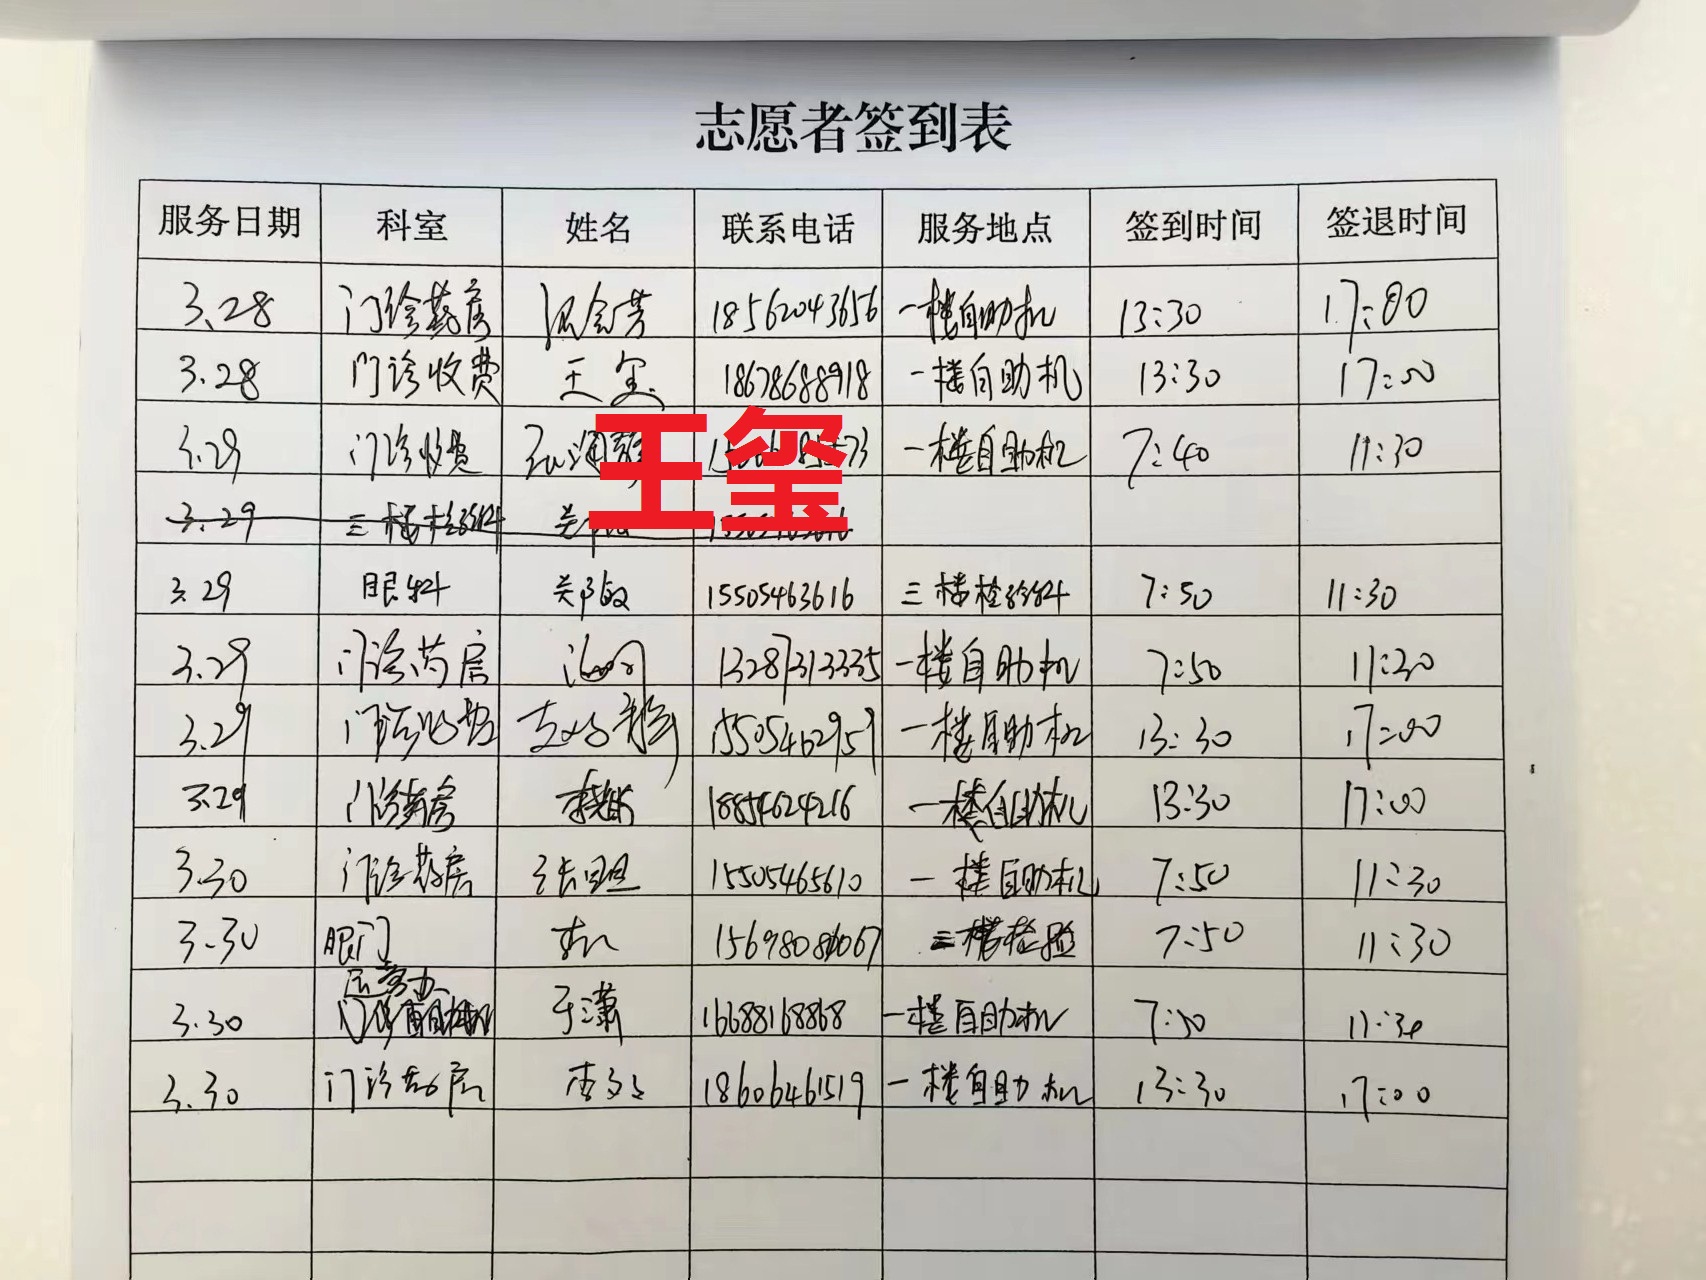 志愿者签到表
服务日期 科室 姓名 联系电话 服务地点 签到时间 签退时间
3.28 门诊药房 18562043656 一楼自助机 13:30 17:00
3.28 门诊收费 王玺 18678688918 一楼自助机 13:30 17:00
王玺
3.29 门诊收费 一楼自助机 7:40 11:30
3.29 三楼检验科
3.29 眼科 15505463616 三楼检验科 7:50 11:30
3.29 门诊药房 13287313335 一楼自助机 7:50 11:30
3.29 门诊收费 15505462959 一楼自助机 13:30 17:00
3.29 门诊药房 18854624216 一楼自助机 13:30 17:00
3.30 门诊药房 15505465610 一楼自助机 7:50 11:30
3.30 眼门 三楼检验 7:50 11:30
3.30 于潇 16688168868 一楼自助机 7:50 11:30
3.30 门诊药房 18606461519 一楼自助机 13:30 17:00